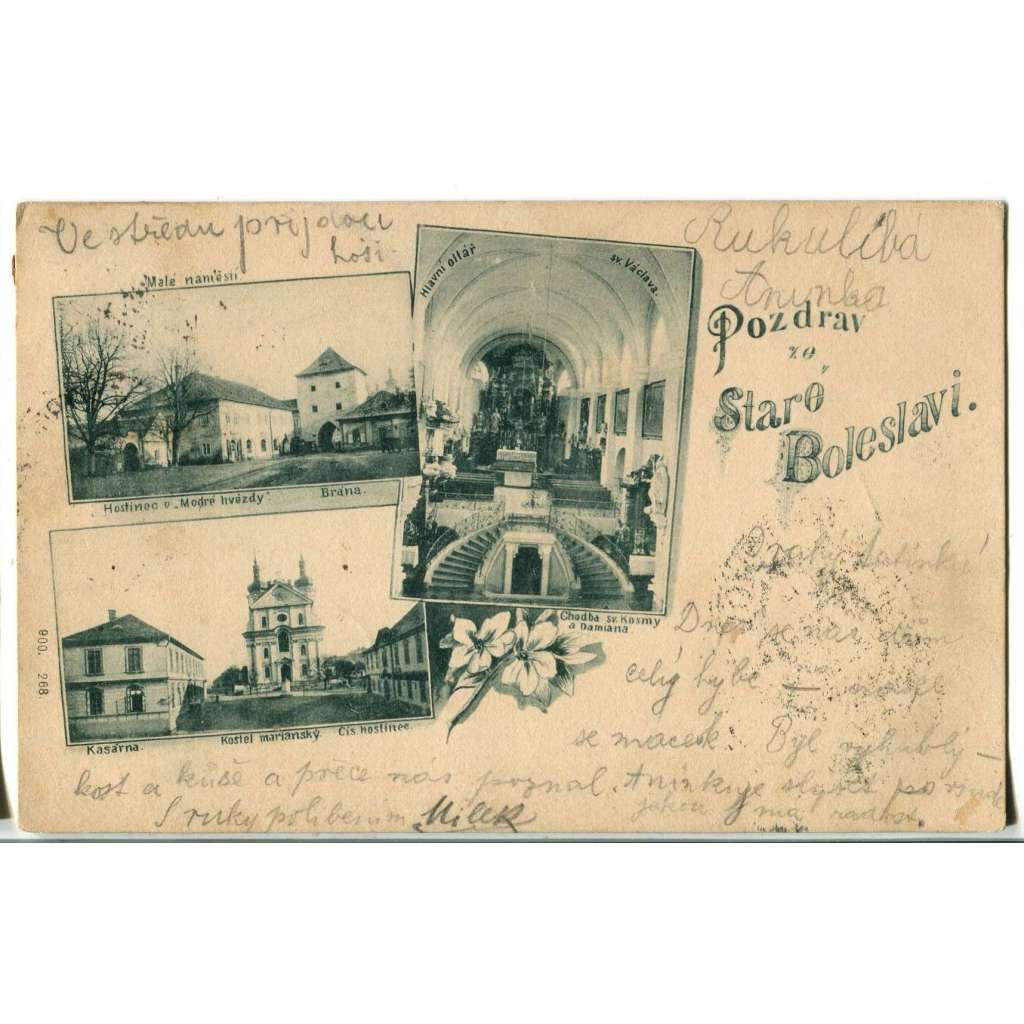 Ve středu přijdou
hoši.
Rukulíbá
Aninka
Malé naměstí
Hlavní oltář
sv. Václava.
Pozdrav
ze
Staré
Boleslavi.
Hostinec u „Modré hvězdy“.
Brána.
Chodba sv. Kosmy
a Damiana
Kasárna.
Kostel marianský.
Cís. hostinec.
900, 268.
Drahý tatínku!
Dnes se náš dům
celý hýbe —
se macek. Byl vyhublý —
kost a kůže a přece nás poznal. Aninku je slyšet po
jakou má radost.
S ruky políbením Milek